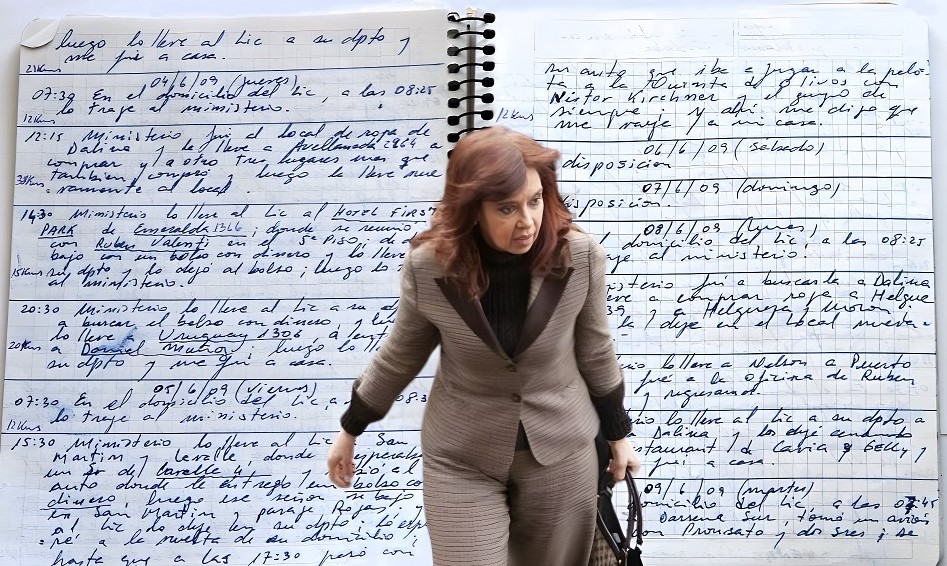 luego lo lleve al Lic a su dpto y
me fui a casa.
21Kms
04/6/09 (jueves)
07:30 En el domicilio del Lic, a las 08:25
lo traje al ministerio.
12Kms
12:15 Ministerio fui al local de ropa de
Dalina y la lleve a Avellaneda 2964 a
comprar y a otro tres lugares mas que
tambien compró y luego la lleve nue
vamente al local.
38Kms
14:30 Ministerio lo lleve al Lic al HOTEL FIRST
PARK de Esmeralda 1366, donde se reunió
con Ruben Valenti en el 5º Piso; de a
bajo con un bolso con dinero y lo lleve
15Kms su dpto y lo dejó al bolso; luego lo
al ministerio.
20:30 Ministerio lo lleve al Lic a su d
a buscar el bolso con dinero, y lu
lo lleve a Uruguay 1306, a
20Kms a Daniel Muñoz; luego lo ll
su dpto y me fui a casa.
05/6/09 (viernes)
07:30 En el domicilio del Lic, a 08:3
lo traje al ministerio.
12Kms
15:30 Ministerio lo lleve al Lic San
Martin y Lavalle donde esperaba
un Sr de Lavalle al
auto donde le entregó un bolso con
dinero, luego ese señor se bajo
en San Martin y pasaje Rojas y
al Lic lo deje en su dpto; lo espe
ré a la vuelta de su domicilio
hasta que a las 17:30 pasó con
su auto que iba a jugar a la pelo
ta a la Quinta de Olivos con
Néstor Kirchner y el grupo de
siempre, y ahi me dijo que
12Kms me vaya a mi casa.
06/6/09 (sabado)
disposicion
07/6/09 (domingo)
isposicion.
08/6/09 (lunes)
domicilio del Lic, a las 08:25
aje al ministerio.
isterio fui a buscar a Dalina
eve a comprar ropa a Helgue
y a Helguera y Moron
la deje en el local nueva-
io lleve a Nelson a Puerto
fué a la oficina de Ruben
y regresamos.
rio lo lleve al Lic a su dpto a
a Dalina y los dejé
staurant de Cavia y Gelly y
fui a casa.
09/6/09 (martes)
domicilio del Lic, a las 07:45
Darsena Sur, tomó un avion
con y dos sres; se